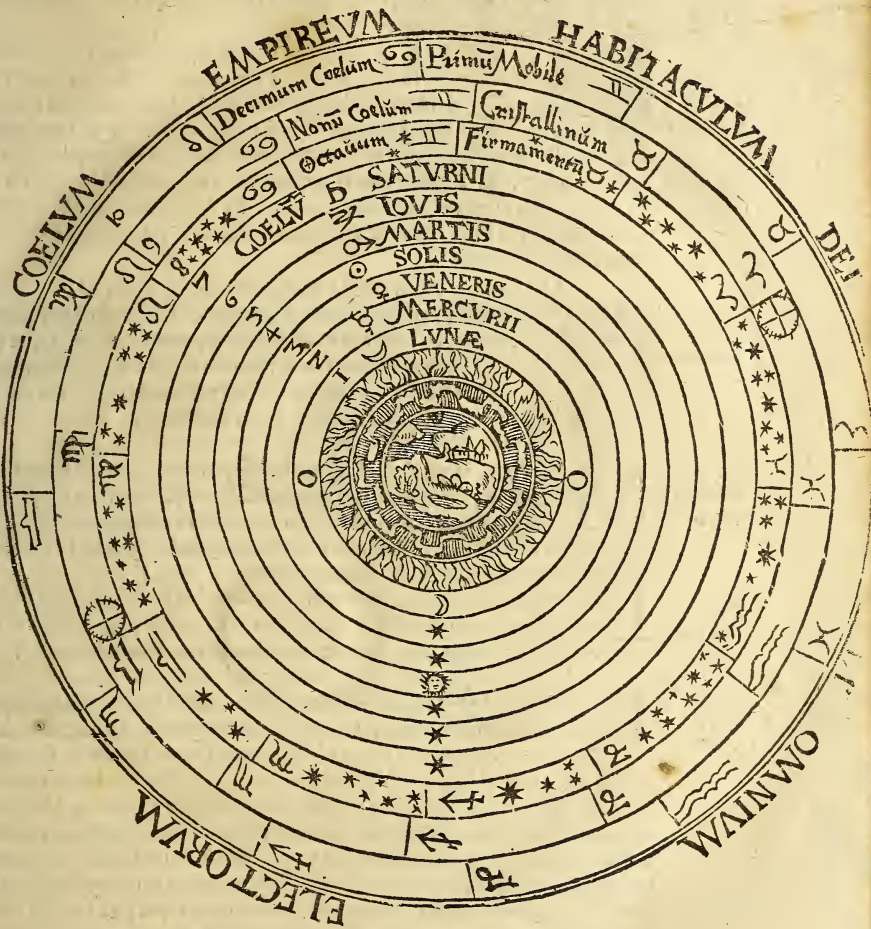 COELVM EMPIREVM HABITACVLVM DEI
OMNIVM ELECTORVM
10 Decimum Coelum Primū Mobile
9 Nonū Coelum Cristallinum
8 Octauum Firmamentū
7 COELV̄ SATVRNI
6 IOVIS
5 MARTIS
4 SOLIS
3 VENERIS
2 MERCVRII
1 LVNÆ